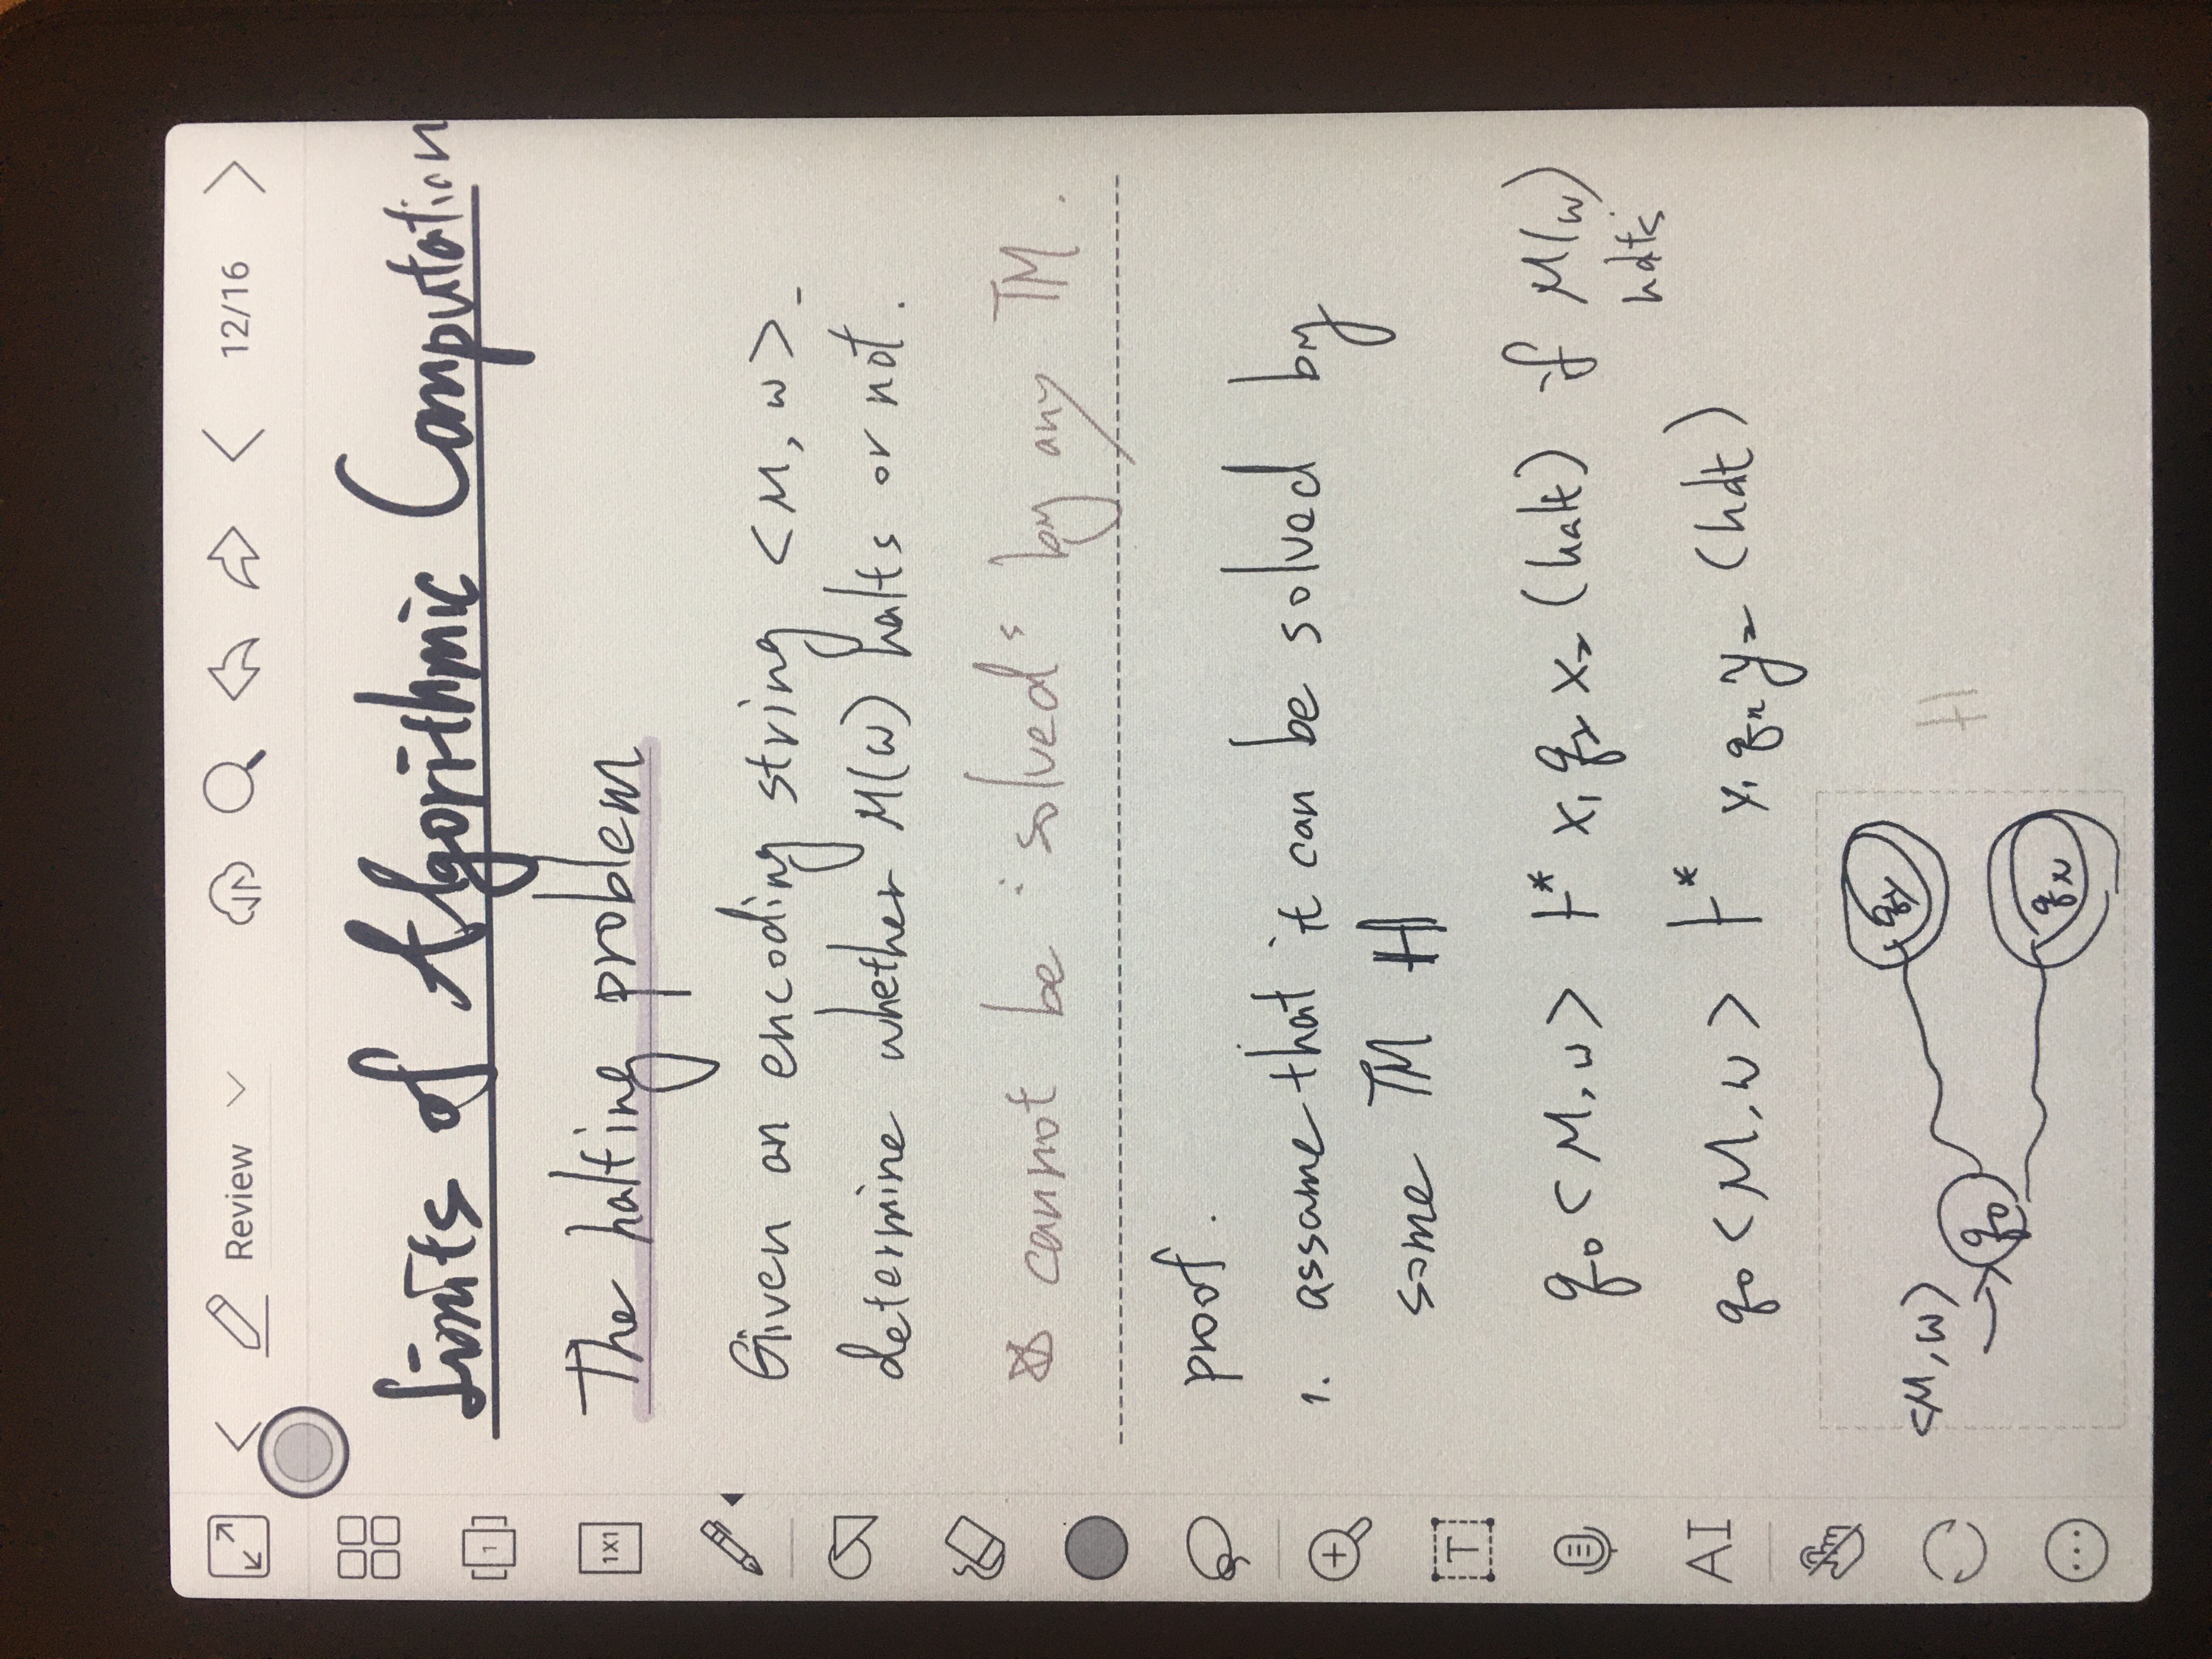 Review
12/16
Limits of Algorithmic Computation
The halting problem
Given an encoding string <M, w>
determine whether M(w) halts or not.
cannot be "solved" by any TM.
proof.
1. assame that it can be solved by
some TM H
q₀<M, w> ⊢* x₁ qy x₂ (halt) if M(w)
halts
q₀<M, w> ⊢* y₁ qn y₂ (halt)
<M, w>
q₀
qy
qn
H
1
1X1
T
AI